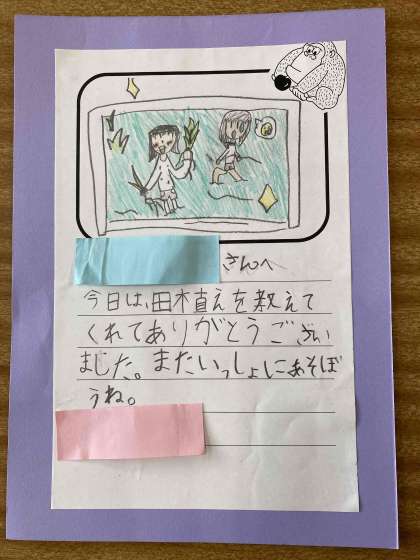 さんへ
今日は、田木直えを教えて
くれてありがとうござい
ました。またいっしょにあそぼ
うね。